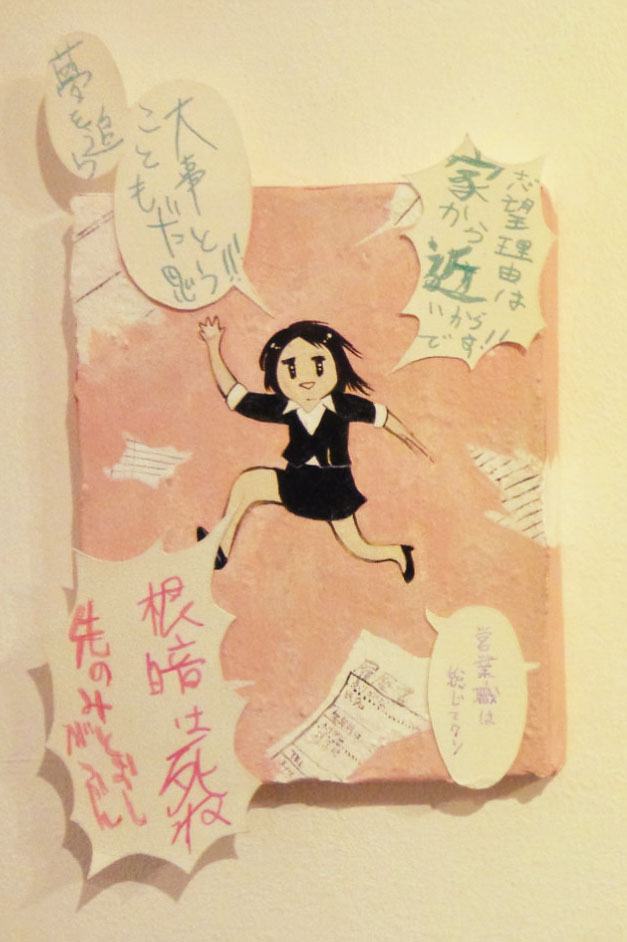 夢を追う
ことも
大事だと思う!!!
志望理由は
家から
近いから
です!!
根暗は死ね
先のみとおし
がふあん
営業職は
総じてクソ
履歴書